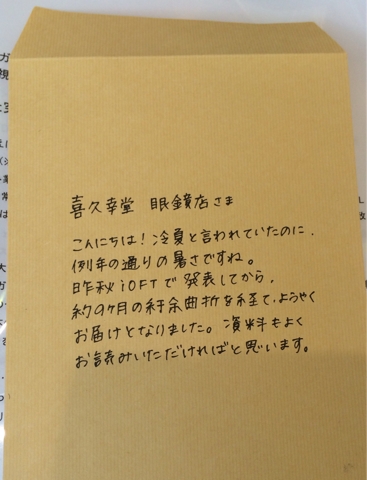 喜久幸堂 眼鏡店さま
こんにちは！冷夏と言われていたのに、
例年の通りの暑さですね。
昨秋iOFTで発表してから、
約9ヶ月の紆余曲折を経て、ようやく
お届けとなりました。資料もよく
お読みいただければと思います。